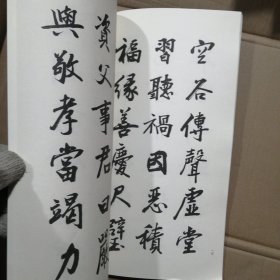 空谷傳聲虛堂
習聽禍因惡積
福緣善慶尺璧
資父事君曰嚴
與敬孝當竭力